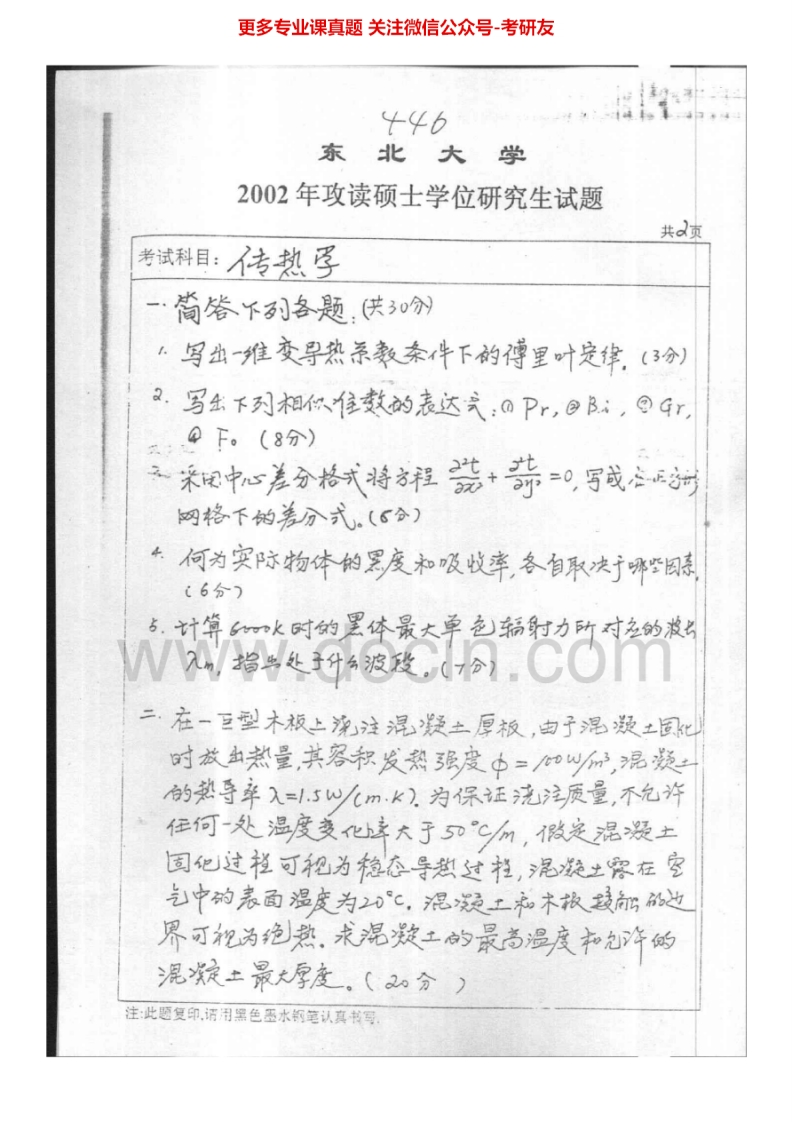 更多专业课真题 关注微信公众号-考研友
446
东 北 大 学
2002 年攻读硕士学位研究生试题
共2页
考试科目: 传热学
一. 简答下列各题: (共30分)
1. 写出一维变导热系数条件下的傅里叶定律. (3分)
2. 写出下列相似准数的表达式: ① Pr, ② Bi, ③ Gr,
④ Fo (8分)
采用中心差分格式将方程 ∂²t/∂x² + ∂²t/∂y² = 0, 写成
网格下的差分式. (6分)
4. 何为实际物体的黑度和吸收率, 各自取决于哪些因素.
(6分)
5. 计算6000K时的黑体最大单色辐射力所对应的波长
λm, 指出处于什么波段. (7分)
www.docin.com
二. 在一巨型木板上浇注混凝土厚板, 由于混凝土固化
时放出热量, 其容积发热强度 φ=100W/m³, 混凝土
的热导率 λ=1.5W/(m·K). 为保证浇注质量, 不允许
任何一处温度变化率大于50°C/m, 假定混凝土
固化过程可视为稳态导热过程, 混凝土露在空
气中的表面温度为20°C. 混凝土和木板接触的边
界可视为绝热. 求混凝土的最高温度和允许的
混凝土最大厚度. (20分)
注:此题复印,请用黑色墨水钢笔认真书写.